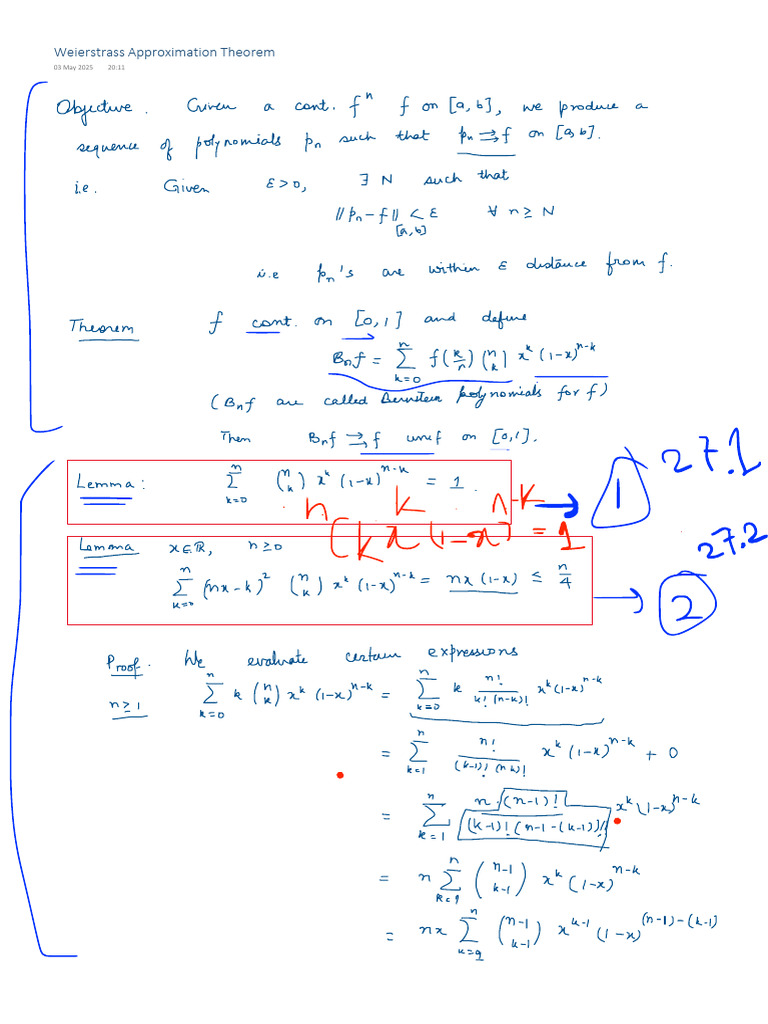 Weierstrass Approximation Theorem
03 May 2025 20:11
Objective. Given a cont. fⁿ f on [a,b], we produce a
sequence of polynomials pₙ such that pₙ ⇉ f on [a,b].
i.e. Given ε>0, ∃ N such that
‖pₙ-f‖ < ε ∀ n ≥ N
[a,b]
i.e pₙ's are within ε distance from f.
Theorem f cont. on [0,1] and define
Bₙf = ∑_{k=0}^{n} f(k/n) (n k) x^k (1-x)^{n-k}
(Bₙf are called Bernstein polynomials for f)
Then Bₙf ⇉ f unif on [0,1].
27.1
Lemma: ∑_{k=0}^{n} (n k) x^k (1-x)^{n-k} = 1. → 1
n k n-k
(k x (1-x) = 1
27.2
Lemma x∈ℝ, n≥0
∑_{k=0}^{n} (nx-k)² (n k) x^k (1-x)^{n-k} = nx(1-x) ≤ n/4 → 2
Proof. We evaluate certain expressions
n≥1 ∑_{k=0}^{n} k (n k) x^k (1-x)^{n-k} = ∑_{k=0}^{n} k n!/(k!(n-k)!) x^k (1-x)^{n-k}
= ∑_{k=1}^{n} n!/((k-1)!(n-k)!) x^k (1-x)^{n-k} + 0
= ∑_{k=1}^{n} n·(n-1)!/((k-1)!(n-1-(k-1))!) x^k (1-x)^{n-k}
= n ∑_{k=1}^{n} (n-1 k-1) x^k (1-x)^{n-k}
= nx ∑^{n} (n-1 k-1) x^{k-1} (1-x)^{(n-1)-(k-1)}